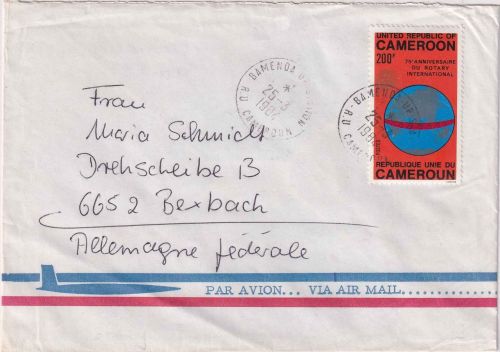 UNITED REPUBLIC OF
CAMEROON
200F
75e ANNIVERSAIRE
DU ROTARY
INTERNATIONAL
REPUBLIQUE UNIE DU
CAMEROUN
BAMENDA
25-3
R.U. CAMEROUN
BAMENDA
25-3
Frau
Maria Schmidt
Drehscheibe 13
6652 Bexbach
Allemagne fédérale
PAR AVION... VIA AIR MAIL